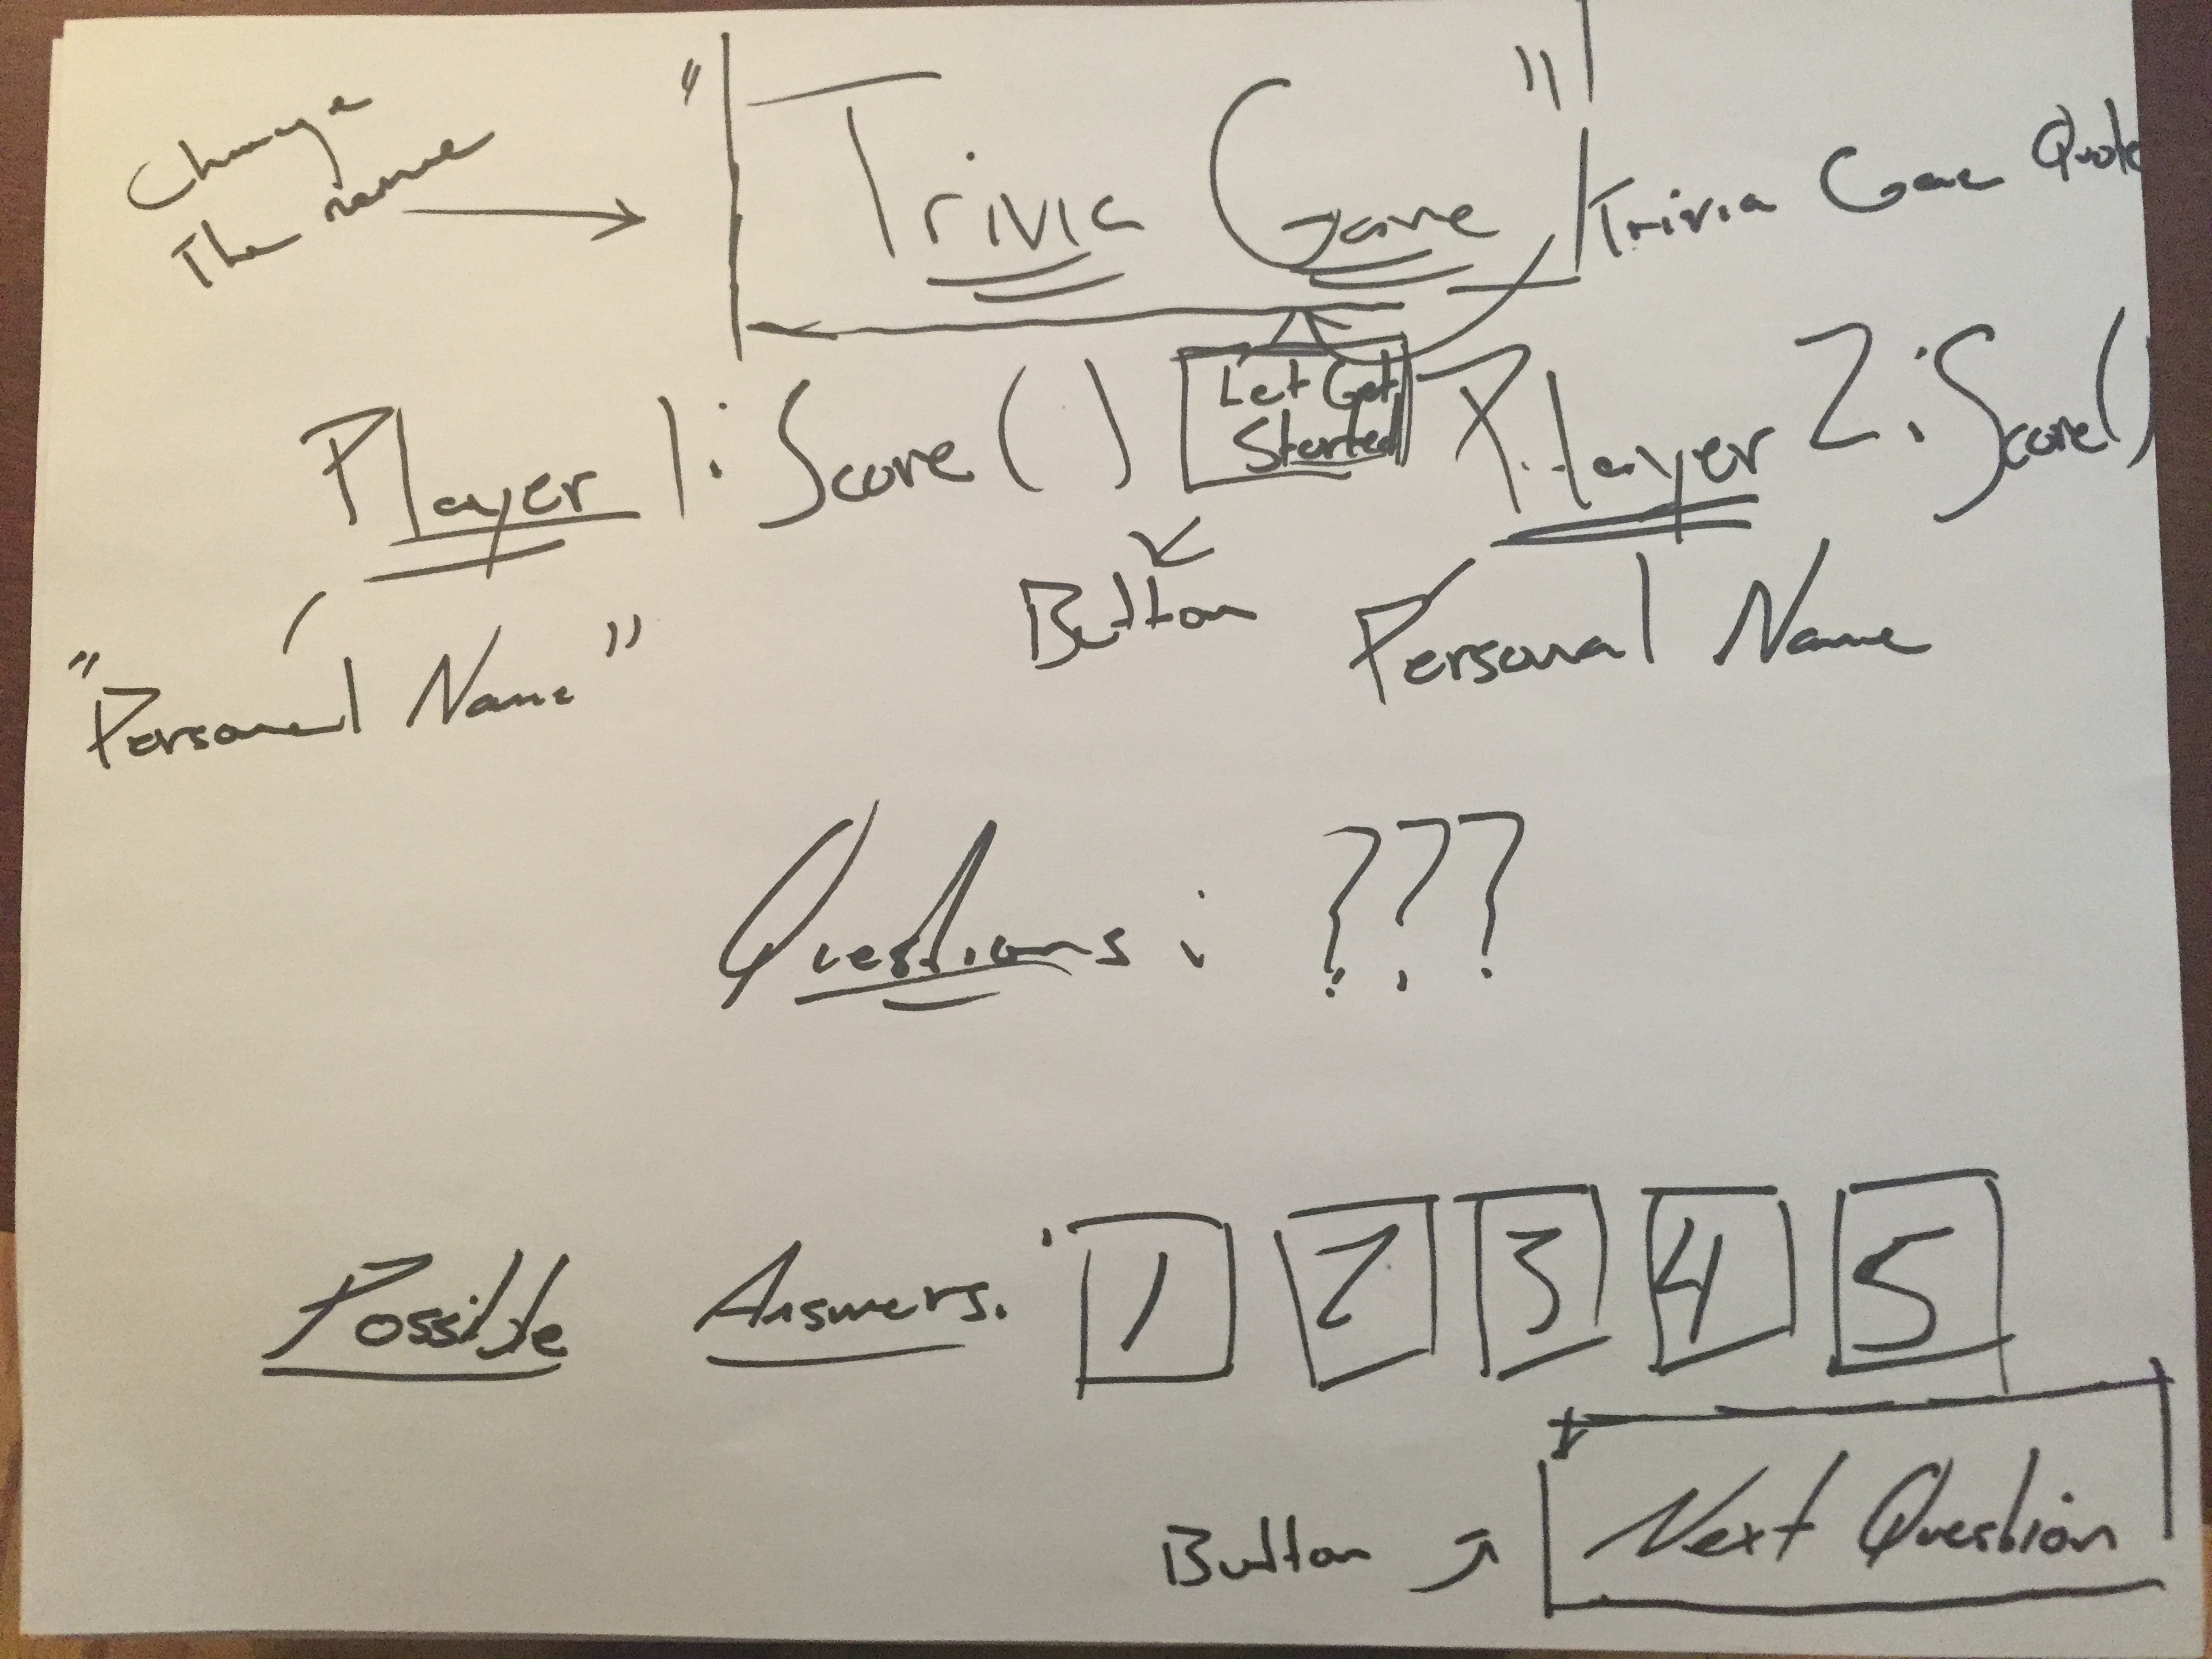 Change
The name
"Trivia Game"
Trivia Game Quote
Player 1: Score ( )
Let Get
Started
Player 2: Score( )
Button
"Personal Name"
Personal Name
Questions: ???
Possible Answers: 1 2 3 4 5
Button
Next Question